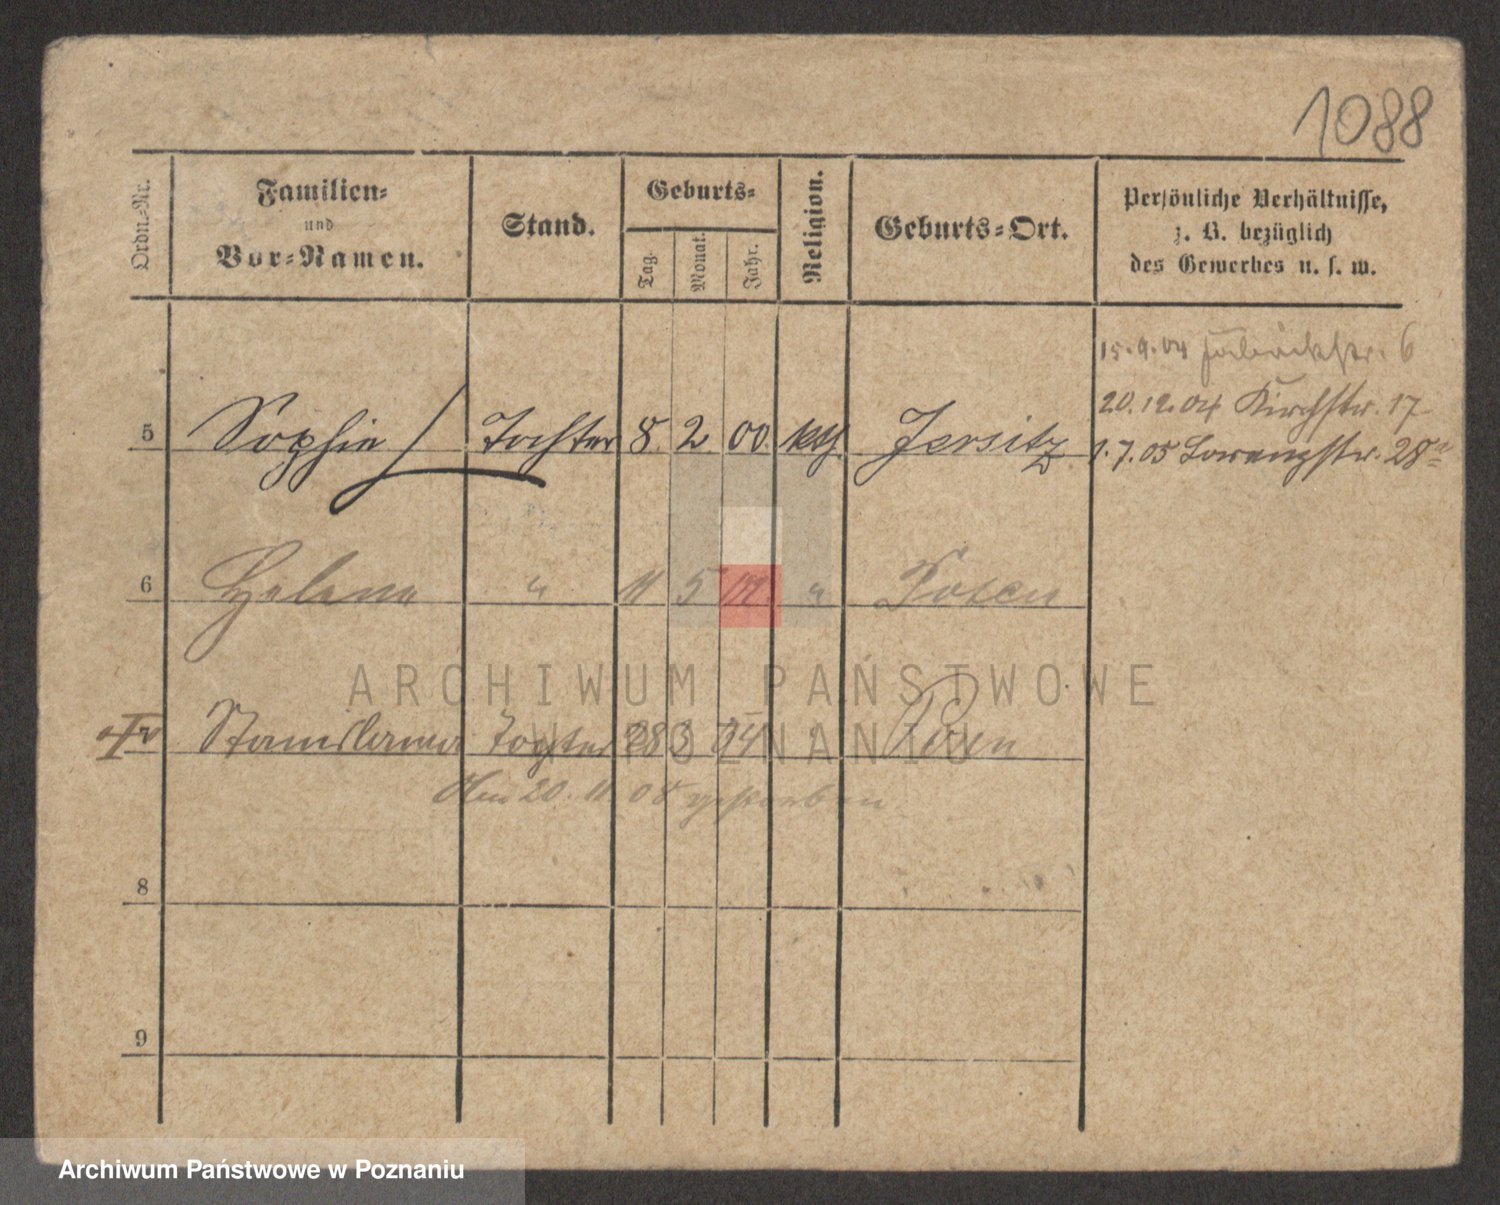 1088
Ordn.-Nr.
Familien-
und
Vor-Namen.
Stand.
Geburts-
Tag.
Monat.
Jahr.
Religion.
Geburts-Ort.
Persönliche Verhältnisse,
z. B. bezüglich
des Gewerbes u. s. w.
15.9.04 6
20.12.04 Kirchstr. 17
5 Sophie Tochter 8. 2. 00. kth. Jersitz 1.7.05 Lorenzstr. 28a
6 Helene " 11 5 " Posen
Stanislawa Tochter 28 3 04 " Posen
20.11.05 gestorben
8
9
ARCHIWUM PAŃSTWOWE
W POZNANIU
Archiwum Państwowe w Poznaniu